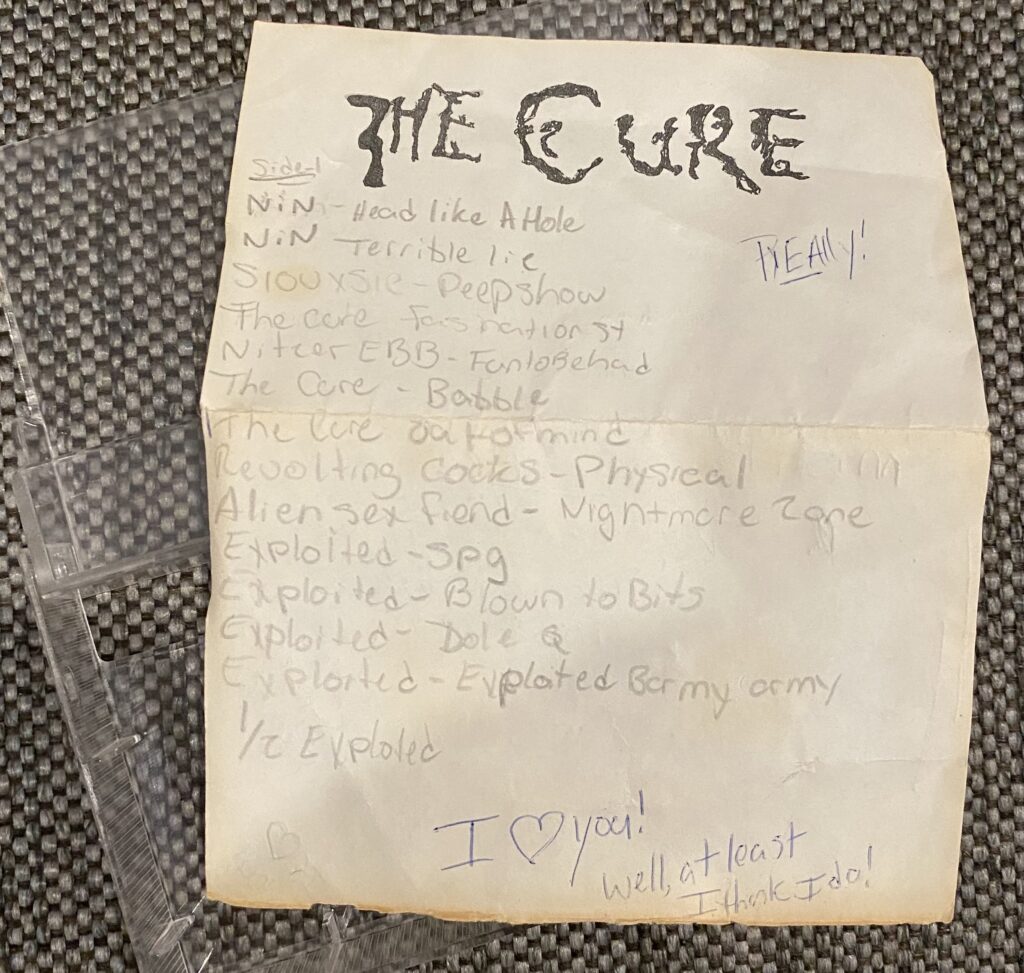 THE CURE
Side-1
NiN - Head like A Hole
NiN Terrible lie
REAlly!
Siouxsie - Peepshow
The cure fasination st
Nitzer EBB - FuntoBehad
The Cure - Babble
The Cure out of mind
Revolting Cocks - Physical
Alien sex fiend - Nightmare Zone
Exploited - Spg
Exploited - Blown to Bits
Exploited - Dole Q
Exploited - Exploited Barmy army
1/2 Exploited
I ♡ you!
Well, at least
I think I do!